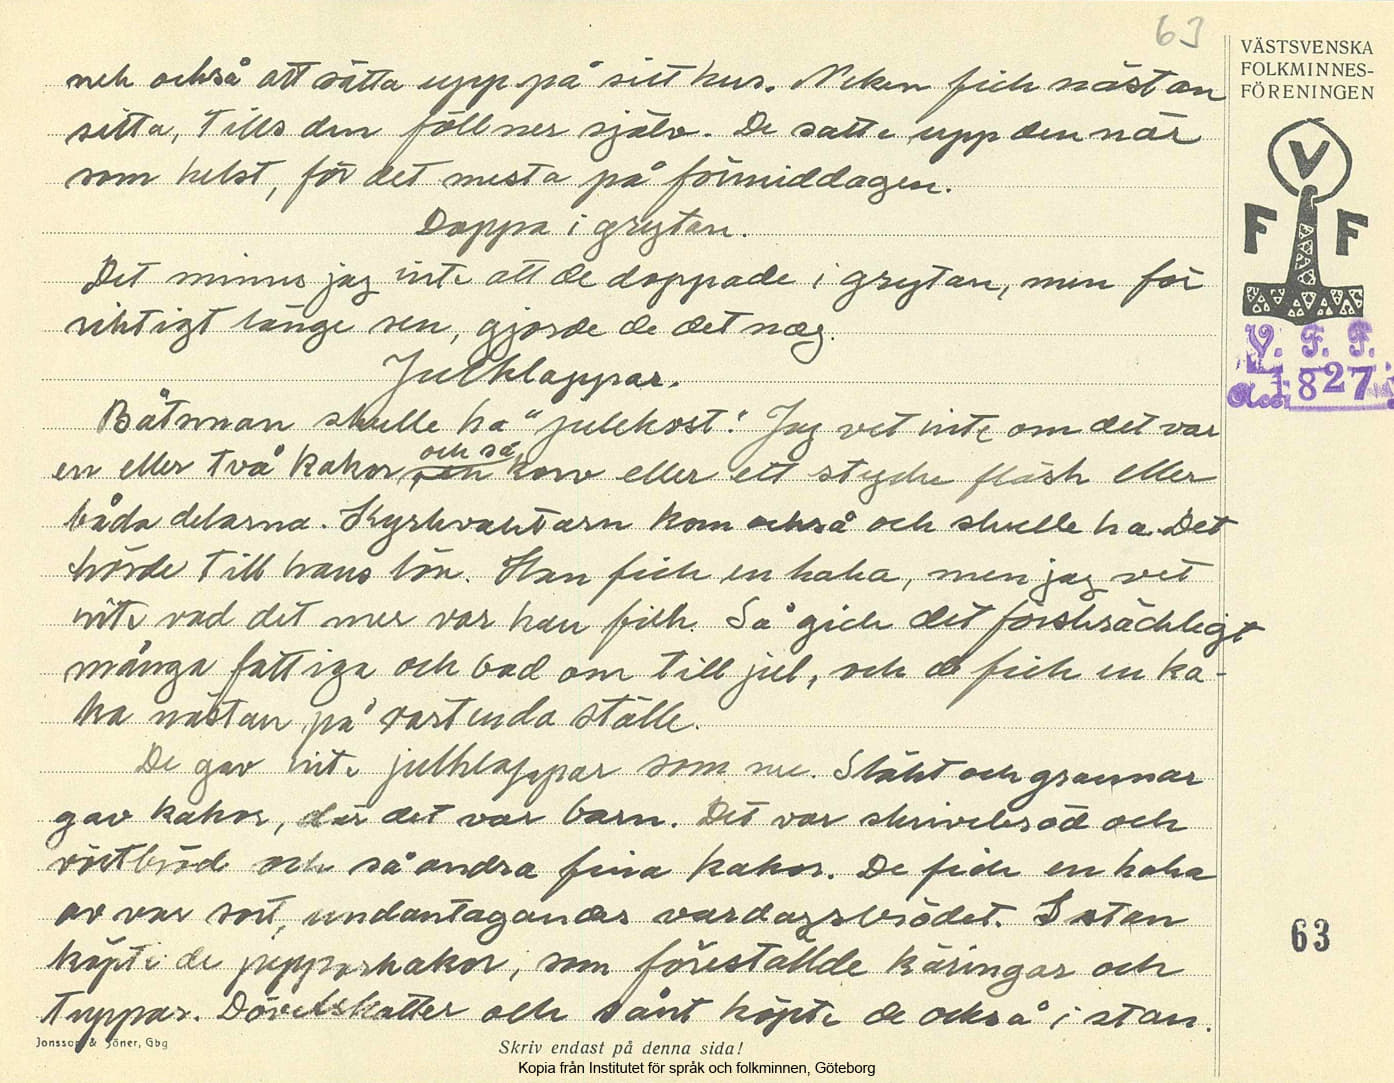 63
VÄSTSVENSKA
FOLKMINNES-
FÖRENINGEN
nek också att sätta upp på sitt hus. Neken fick nästan
sitta, tills den föll ner själv. De satte upp den när
som helst, för det mesta på förmiddagen.
Doppa i grytan.
Det minns jag inte att de doppade i grytan, men för
riktigt länge sen, gjorde de det nog.
Julklappar.
Båtsman skulle ha "julekost". Jag vet inte om det var
en eller två kakor och så korv eller ett stycke fläsk eller
båda delarna. Kyrkvaktarn kom också och skulle ha. Det
hörde till hans lön. Han fick en kaka, men jag vet
inte vad det mer var han fick. Så gick det förskräckligt
många fattiga och bad om till jul, och de fick en ka-
ka nästan på vartenda ställe.
De gav inte julklappar som nu. Släkt och grannar
gav kakor, där det var barn. Det var skrivebröd och
röstbröd och så andra fina kakor. De fick en kaka
av var sort, undantagandes vardagsbrödet. I stan
köpte de pepparkakor, som föreställde käringar och
tuppar. Dövelskatter och sånt köpte de också i stan.
V
F F
V. F. F.
Acc. 1827
63
Jonsson & Söner, Gbg
Skriv endast på denna sida!
Kopia från Institutet för språk och folkminnen, Göteborg